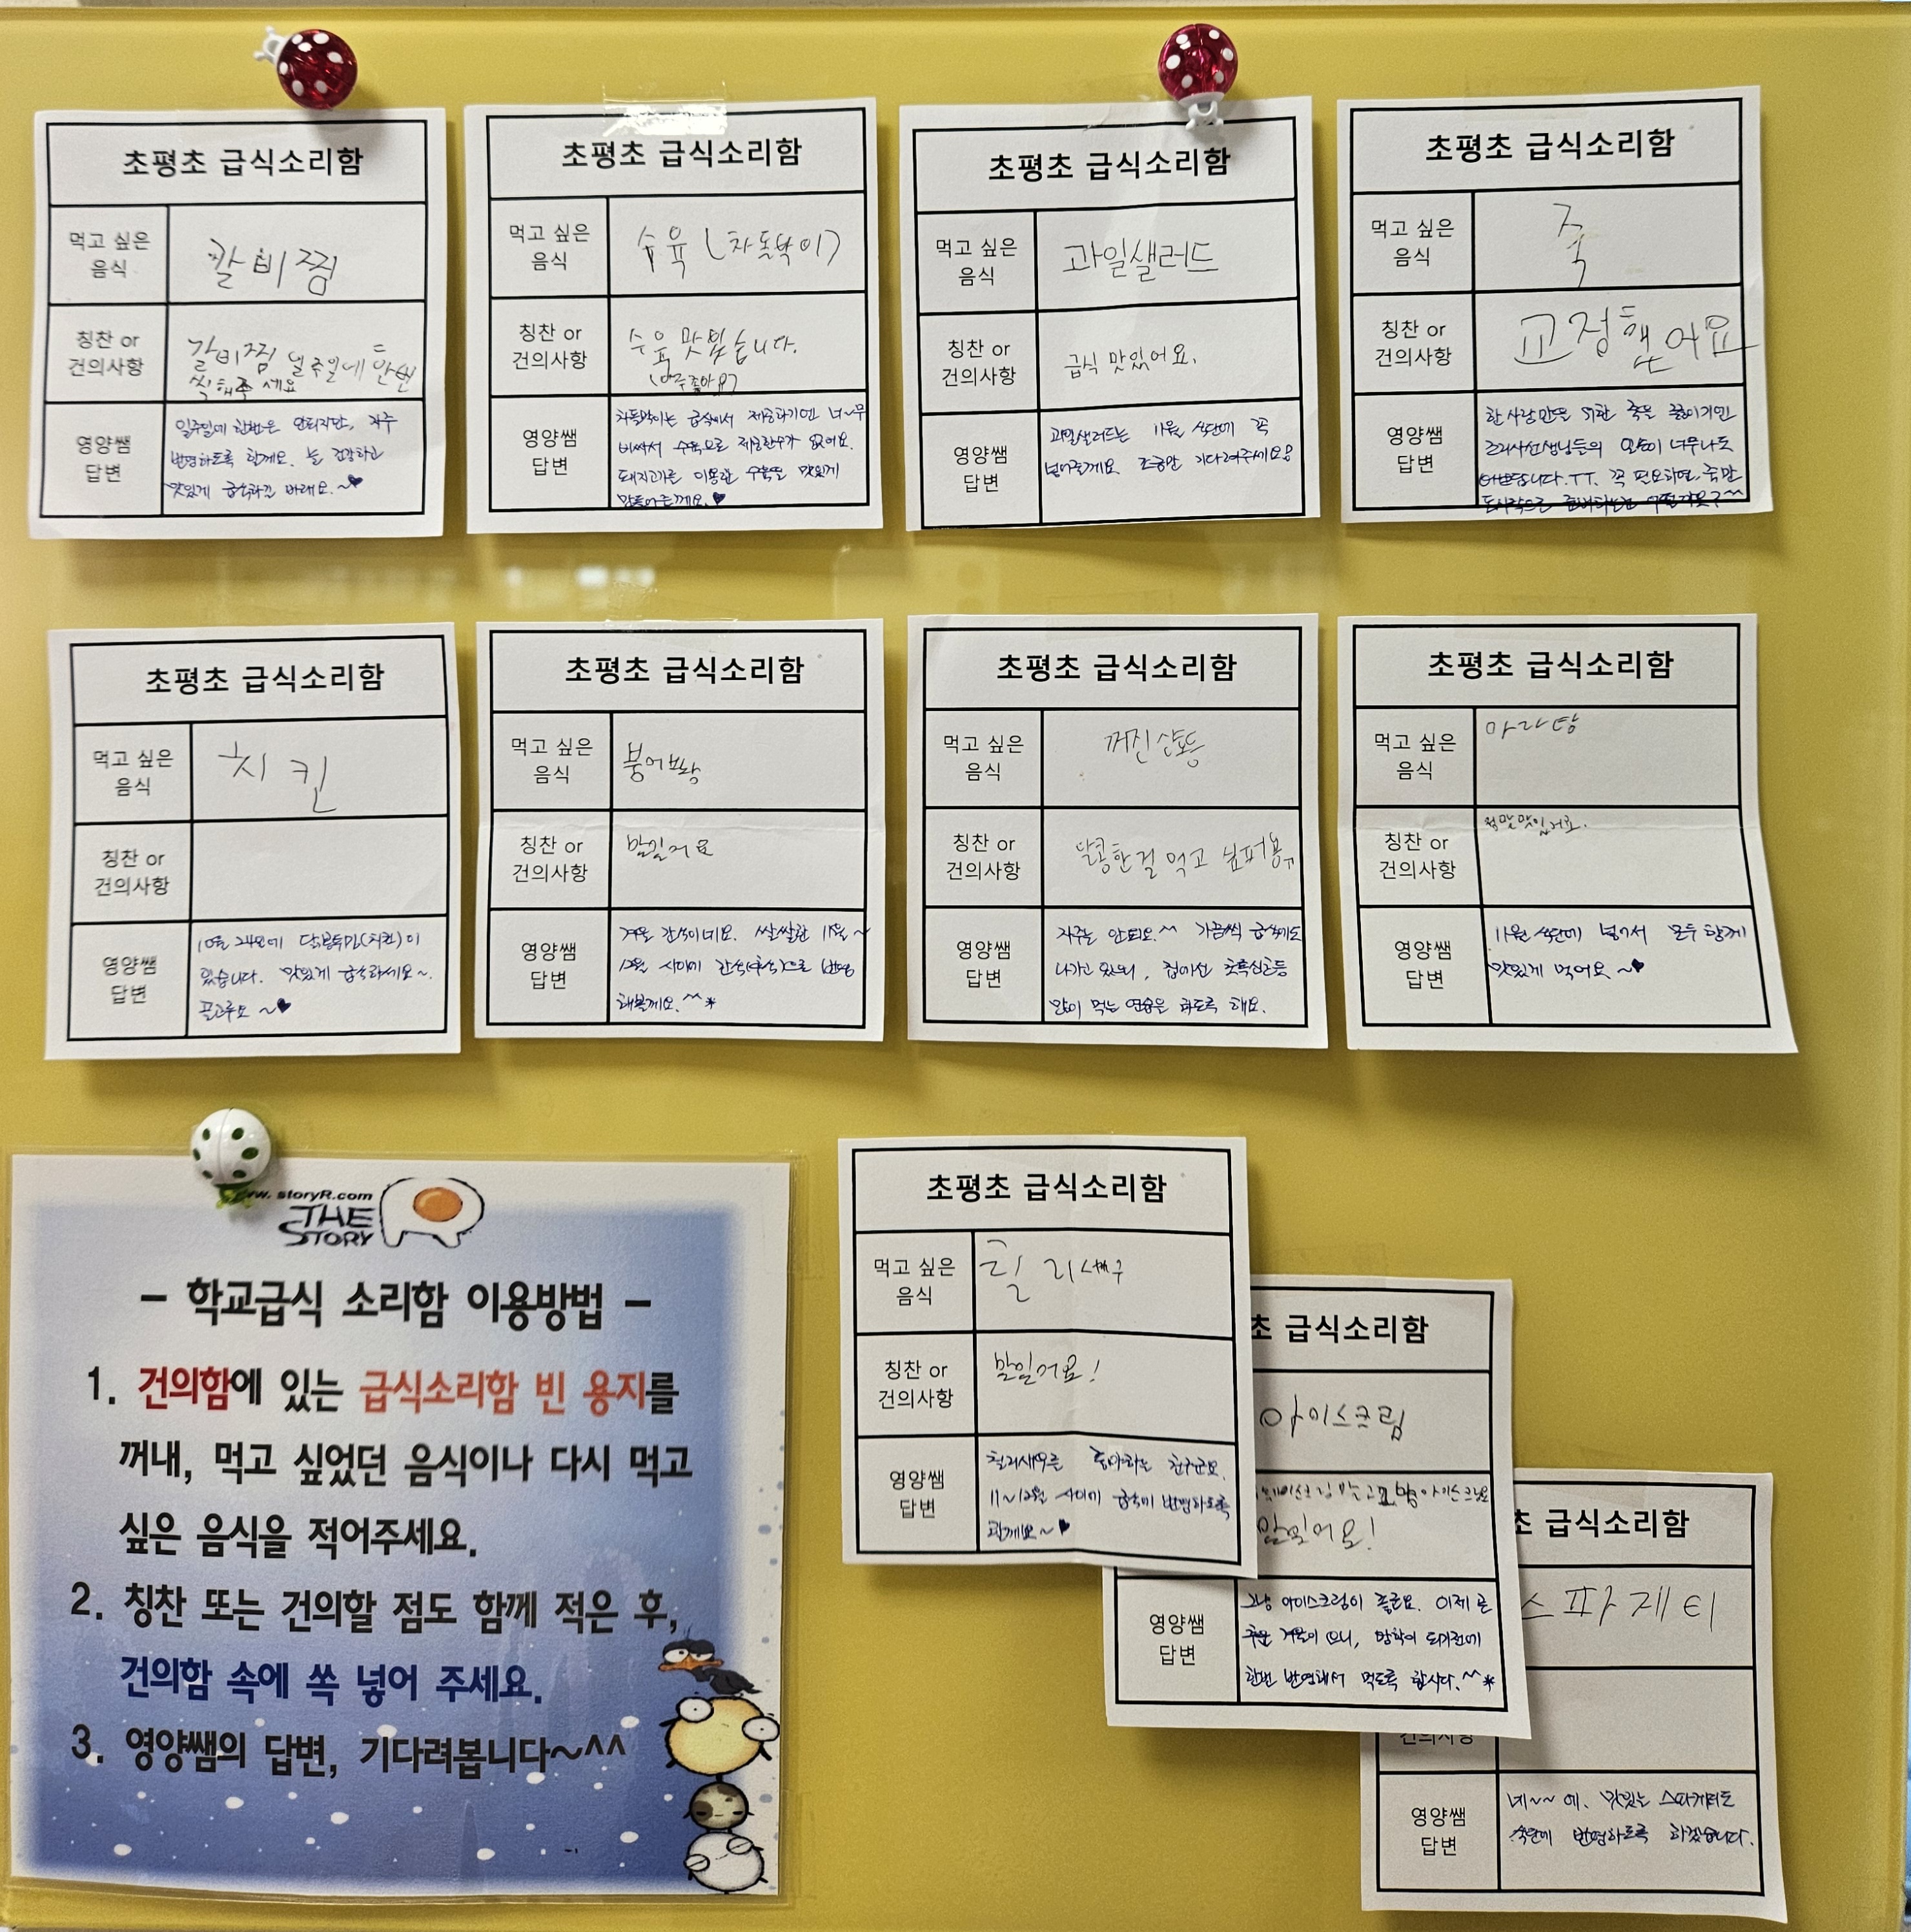 초평초 급식소리함
먹고 싶은
음식
갈비찜
칭찬 or
건의사항
갈비찜 일주일에 한번
씩 해주세요
영양쌤
답변
일주일에 한번은 안되지만, 자주
반영하도록 할게요. 늘 건강하고
맛있게 급식하길 바래요.~♥
초평초 급식소리함
먹고 싶은
음식
수육 (차돌박이)
칭찬 or
건의사항
수육 맛있습니다.
(아주좋아요)
영양쌤
답변
차돌박이는 급식에서 제공하기엔 너~무
비싸서 수육으로 제공할수가 없어요.
돼지고기를 이용한 수육을 맛있게
만들어줄께요.♥
초평초 급식소리함
먹고 싶은
음식
과일샐러드
칭찬 or
건의사항
급식 맛있어요.
영양쌤
답변
과일샐러드는 11월 식단에 꼭
넣어줄께요. 조금만 기다려주세요
초평초 급식소리함
먹고 싶은
음식
죽
칭찬 or
건의사항
교정했어요
영양쌤
답변
한 사람만을 위한 죽을 끓이기엔
조리사선생님들의 일손이 너무나도
바쁩니다.TT. 꼭 필요하면, 죽만
도시락으로 준비하는건 어떨까요?^^
초평초 급식소리함
먹고 싶은
음식
치킨
칭찬 or
건의사항
영양쌤
답변
10월 24일에 닭봉튀김(치킨)이
있습니다. 맛있게 급식하세요~.
골고루요 ~♥
초평초 급식소리함
먹고 싶은
음식
붕어빵
칭찬 or
건의사항
맛있어요
영양쌤
답변
겨울 간식이네요. 쌀쌀한 11월~
12월 사이에 간식(후식)으로 반영
해볼께요.^^*
초평초 급식소리함
먹고 싶은
음식
꺼진 신호등
칭찬 or
건의사항
달콤한걸 먹고 싶퍼용ㅠ
영양쌤
답변
자주는 안되요.^^ 가끔씩 급식에도
나가고 있으니, 집에선 초록신호등
많이 먹는 연습을 하도록 해요.
초평초 급식소리함
먹고 싶은
음식
마라탕
칭찬 or
건의사항
정말맛있어요.
영양쌤
답변
11월 식단에 넣어서 모두 함께
맛있게 먹어요 ~♥
www.storyR.com
THE
STORY
- 학교급식 소리함 이용방법 -
1. 건의함에 있는 급식소리함 빈 용지를
꺼내, 먹고 싶었던 음식이나 다시 먹고
싶은 음식을 적어주세요.
2. 칭찬 또는 건의할 점도 함께 적은 후,
건의함 속에 쏙 넣어 주세요.
3. 영양쌤의 답변, 기다려봅니다~^^
초평초 급식소리함
먹고 싶은
음식
칠리새우
칭찬 or
건의사항
맛있어요!
영양쌤
답변
칠리새우를 좋아하는 친구군요.
11~12월 사이에 급식에 반영하도록
할게요~♥
초 급식소리함
아이스크림
맛있어요!
영양쌤
답변
그냥 아이스크림이 좋군요. 이제 곧
추운 겨울이 오니, 방학이 되기전에
한번 반영해서 먹도록 합시다.^^*
초 급식소리함
스파게티
건의사항
영양쌤
답변
네~~ 에. 맛있는 스파게티도
식단에 반영하도록 하겠습니다.